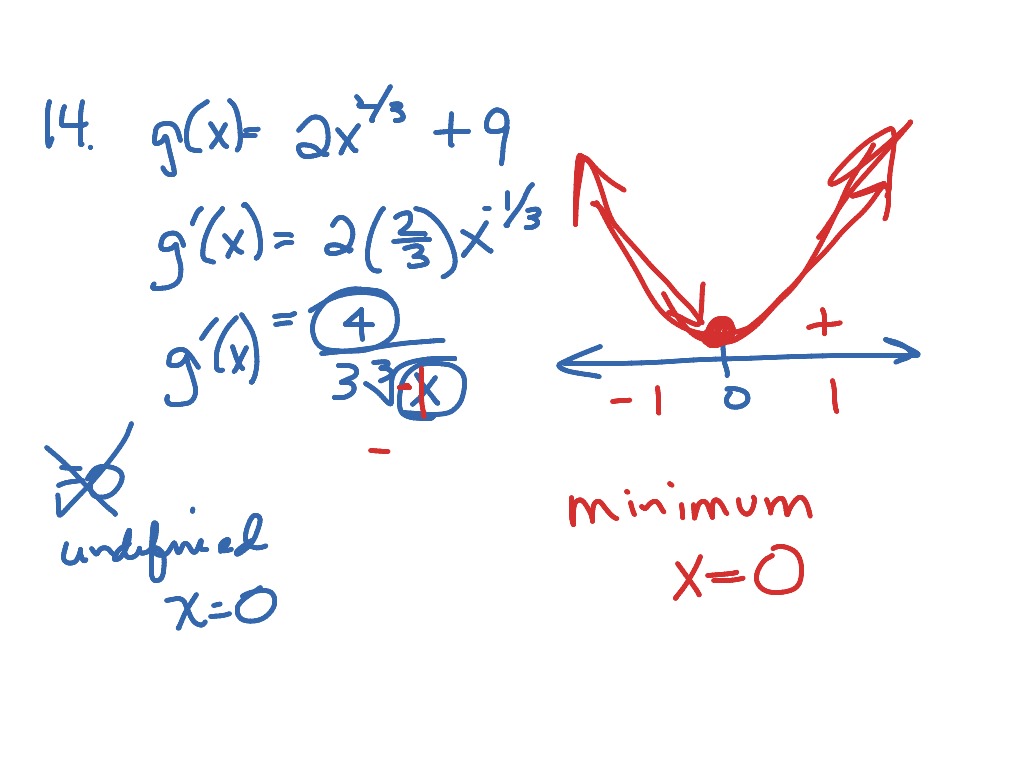 14. g(x) = 2x^(2/3) + 9
g'(x) = 2(2/3)x^(-1/3)
g'(x) = 4
3∛x
-1
-
=0
undefined
x=0
+
-1 0 1
minimum
x=0